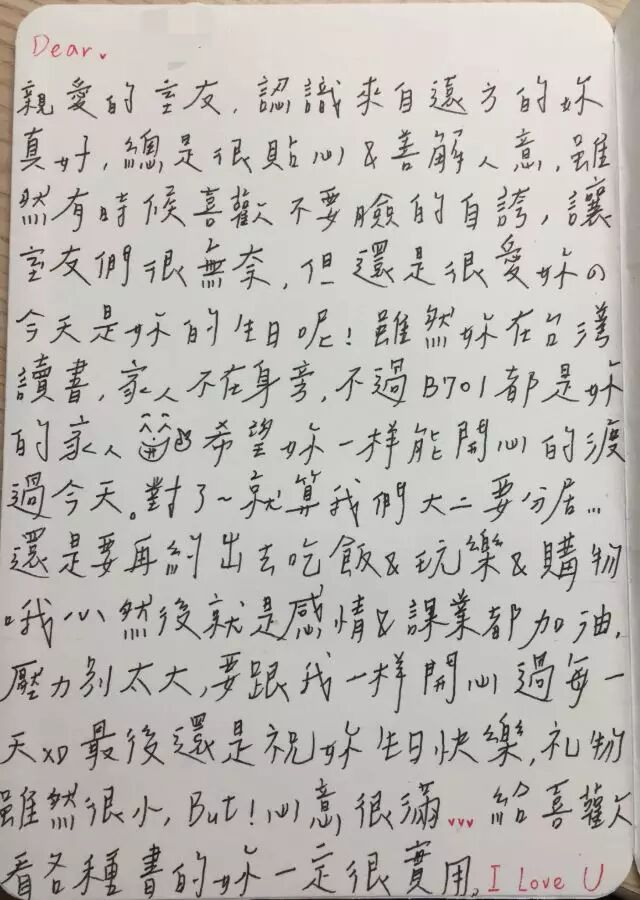 Dear.
親愛的室友,認識來自遠方的妳
真好,總是很貼心&善解人意,雖
然有時候喜歡不要臉的自誇,讓
室友們很無奈,但還是很愛妳の
今天是妳的生日呢!雖然妳在台灣
讀書,家人不在身旁,不過B701都是妳
的家人 希望妳一樣能開心的渡
過今天。對了~就算我們大二要分居...
還是要再約出去吃飯&玩樂&購物
哦 然後就是感情&課業都加油,
壓力別太大,要跟我一樣開心過每一
天XD最後還是祝妳生日快樂,礼物
雖然很小,But!心意很滿... 給喜歡
看各種書的妳一定很實用。I Love U